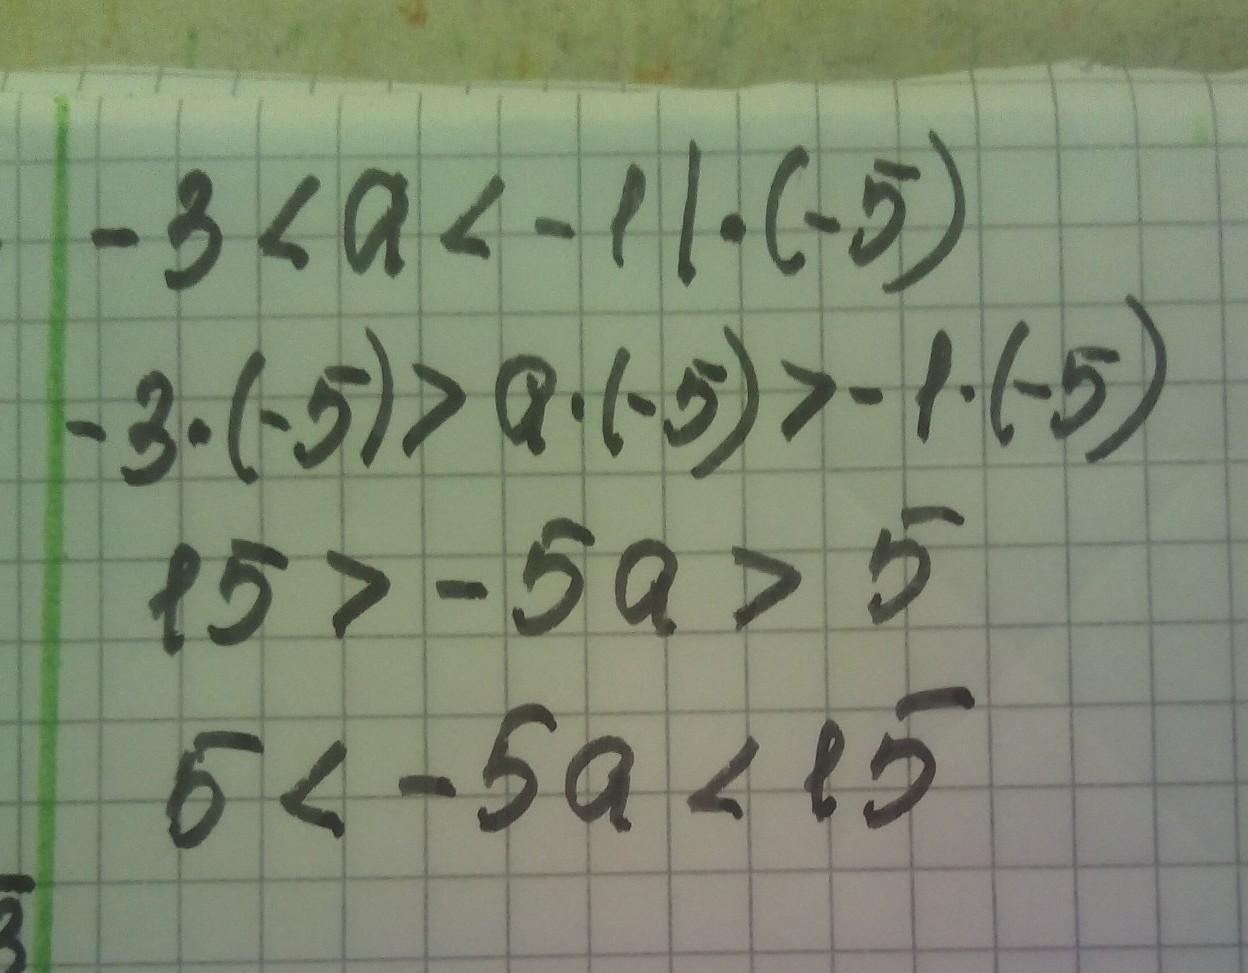 -3 < a < -1 | · (-5)
-3 · (-5) > a · (-5) > -1 · (-5)
15 > -5a > 5
5 < -5a < 15
3